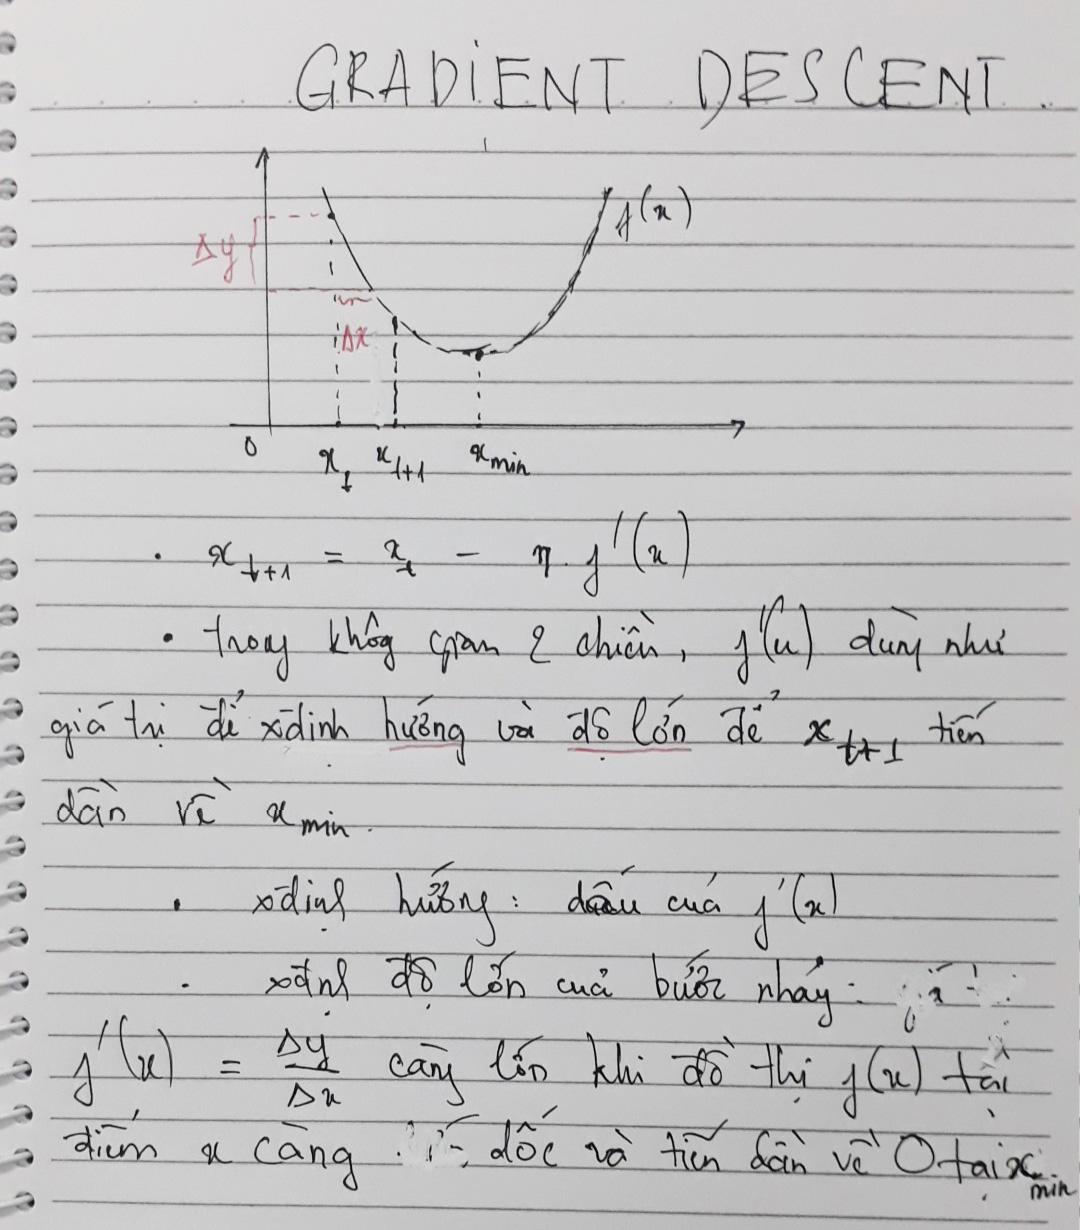 GRADIENT DESCENT
f(x)
Δy
Δx
0
x_t x_t+1 x_min
. x_t+1 = x_t - η. f'(x)
• trong không gian 2 chiều, f'(x) dùng như
giá trị để xđịnh hướng và độ lớn để x_t+1 tiến
dần về x_min.
. xđịnh hướng: dấu của f'(x)
. xđịnh độ lớn của bước nhảy:
f'(x) = Δy/Δx càng lớn khi đồ thị f(x) tại
điểm x càng dốc và tiến dần về 0 tại x_min.